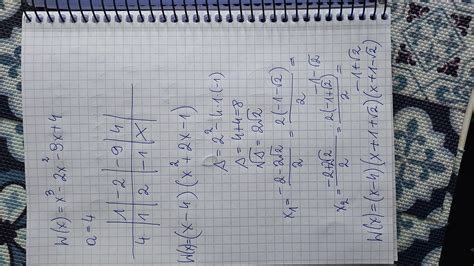 W(x) = x³ - 2x² - 9x + 4
a = 4
| 1 | -2 | -9 | 4 |
4 | 1 | 2 | -1 | X |
W(x) = (x - 4)(x² + 2x - 1)
Δ = 2² - 4·1·(-1)
Δ = 4 + 4 = 8
√Δ = 2√2
x₁ = (-2 - 2√2)/2 = 2(-1 - √2)/2 = -1 - √2
x₂ = (-2 + 2√2)/2 = 2(-1 + √2)/2 = -1 + √2
W(x) = (x - 4)(x + 1 + √2)(x + 1 - √2)